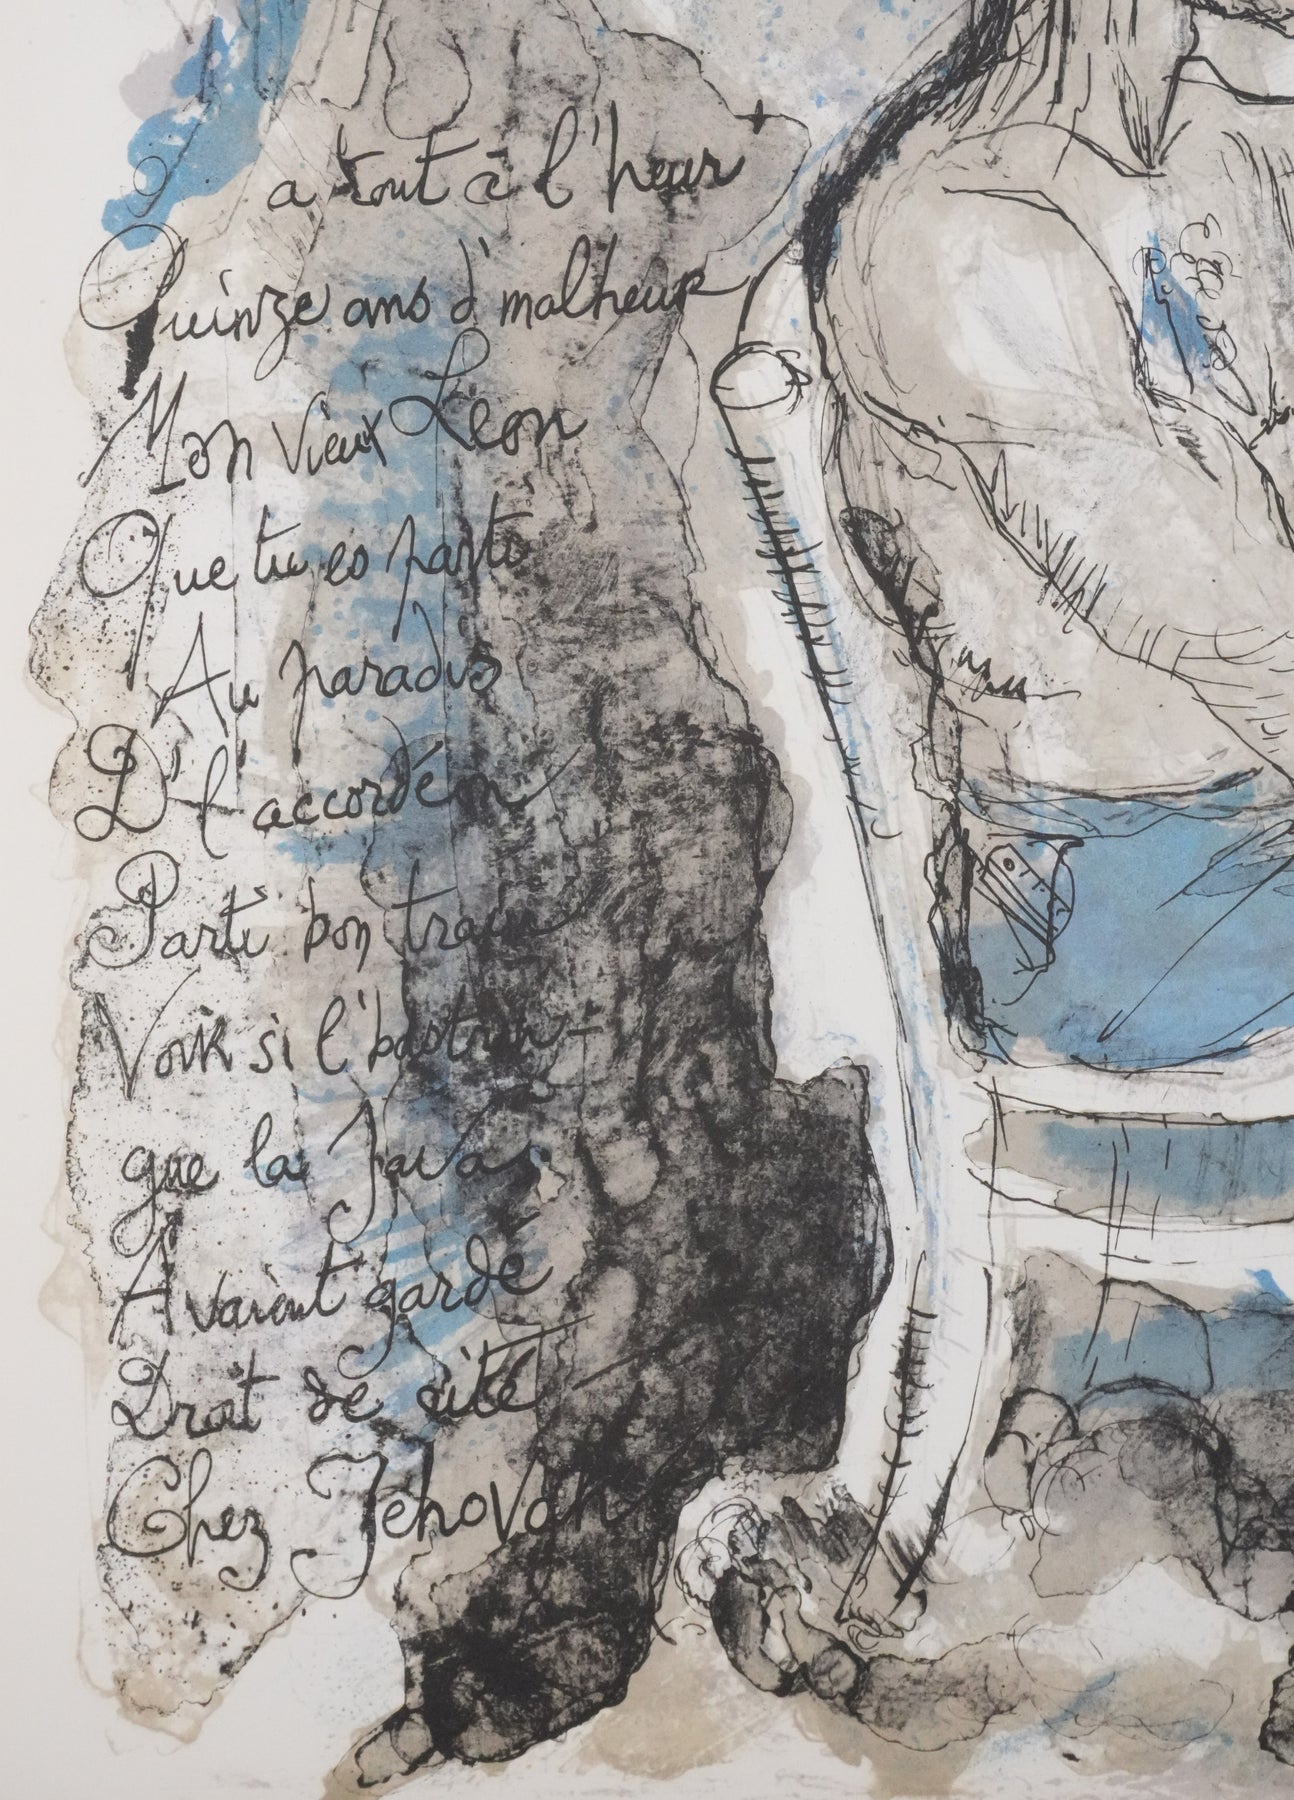 Y a tout à l'heur'
Quinze ans d'malheur
Mon vieux Léon
Que tu es parti
Au paradis
D'l'accordéon
Parti bon train
Voir si l'bastrin-
gue la Java
Avaient gardé
Droit de cité
Chez Jehovah